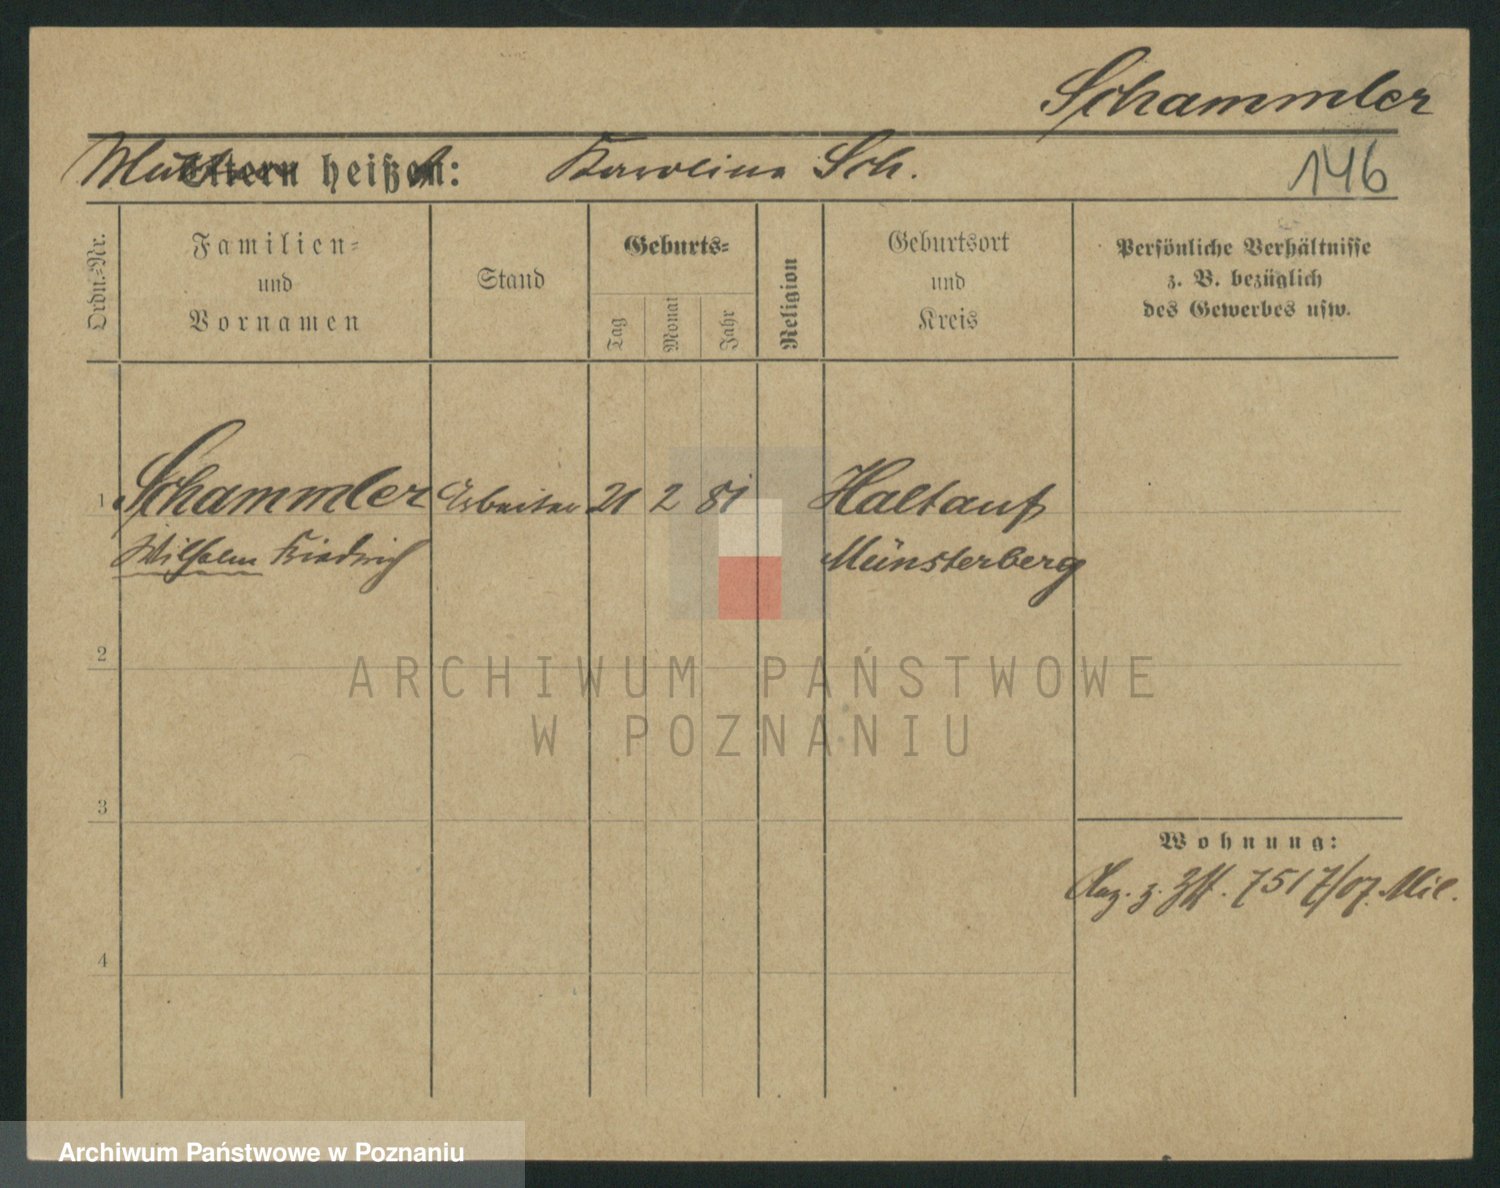 Schammler
Mutter heißt: Karolina Sch.
146
Ordn.-Nr.
Familien-
und
Vornamen
Stand
Geburts-
Tag
Monat
Jahr
Religion
Geburtsort
und
Kreis
Persönliche Verhältnisse
z. B. bezüglich
des Gewerbes usw.
1 Schammler Arbeiter 21 2 81 Haltauf
Wilhelm Friedrich Münsterberg
2
ARCHIWUM PAŃSTWOWE
W POZNANIU
3
Wohnung:
z. 7517/07. Mil.
4
Archiwum Państwowe w Poznaniu